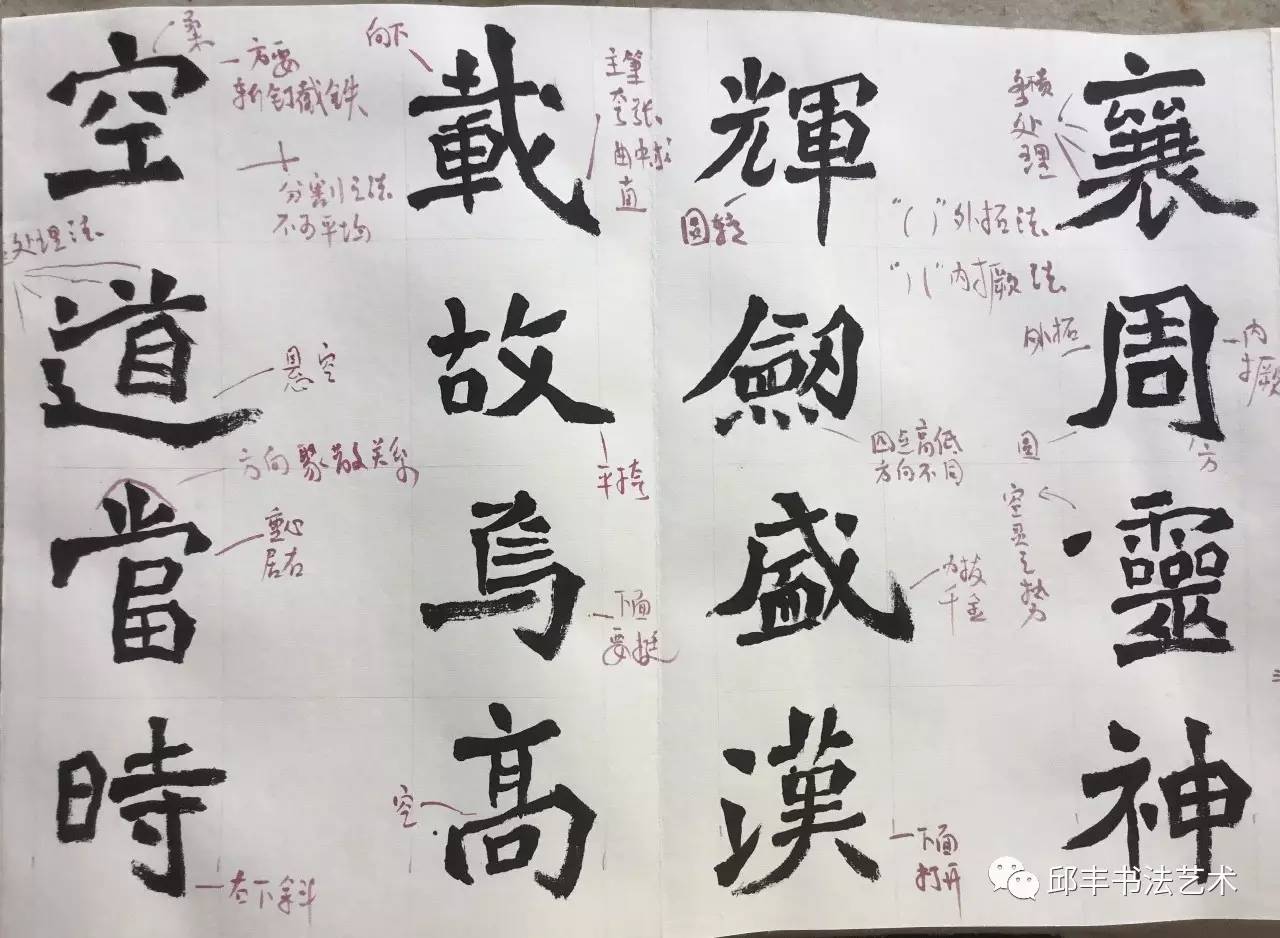 襄
周
靈
神
輝
劒
盛
漢
載
故
烏
高
空
道
當
時
多横
处
理
"( )"外拓法
") ("内擫法
外拓
内
擫
圆
方
空灵之势
圆转
四点高低
方向不同
力拔
千金
下面
打开
向下
主筆
夸张
曲中求
直
平挎
下面
要挺
空
柔
方要
斩钉截铁
分割之法
不可平均
处理法
悬空
方向 聚散关系
重心
居右
左下斜
邱丰书法艺术